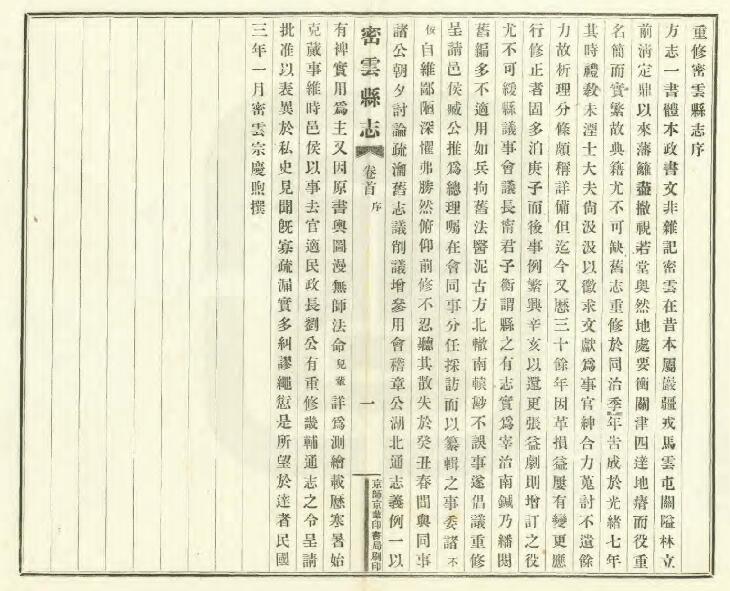 重修密雲縣志序
方志一書體本政書文非雜記密雲在昔本屬巖疆戎馬雲屯關隘林立
前淸定鼎以來藩籬盡撤視若堂奧然地處要衝關津四達地瘠而役重
名簡而實繁故典籍尤不可缺舊志重修於同治季年吿成於光緒七年
其時禮敎未湮士大夫尙汲汲以徵求文獻爲事官紳合力蒐討不遺餘
力故析理分條頗稱詳備但迄今又歷三十餘年因革損益屢有變更應
行修正者固多洎庚子而後事例繁興辛亥以還更張益劇則增訂之役
尤不可緩縣議事會議長甯君子衡謂縣之有志實爲宰治南鍼乃繙閱
舊編多不適用如兵拘舊法醫泥古方北轍南轅尠不誤事遂倡議重修
呈請邑侯臧公推爲總理囑在會同事分任採訪而以纂輯之事委諸不
佞自維鄙陋深懼弗勝然俯仰前修不忍聽其散失於癸丑春間與同事
諸公朝夕討論疏瀹舊志議削議增參用會稽章公湖北通志義例一以
密雲縣志 卷首 序 一 京師京華印書局刷印
有裨實用爲主又因原書輿圖漫無師法命兒輩詳爲測繪載歷寒暑始
克蕆事維時邑侯以事去官適民政長劉公有重修畿輔通志之令呈請
批准以表異於私史見聞旣寡疏漏實多糾謬繩愆是所望於達者民國
三年一月密雲宗慶煦撰